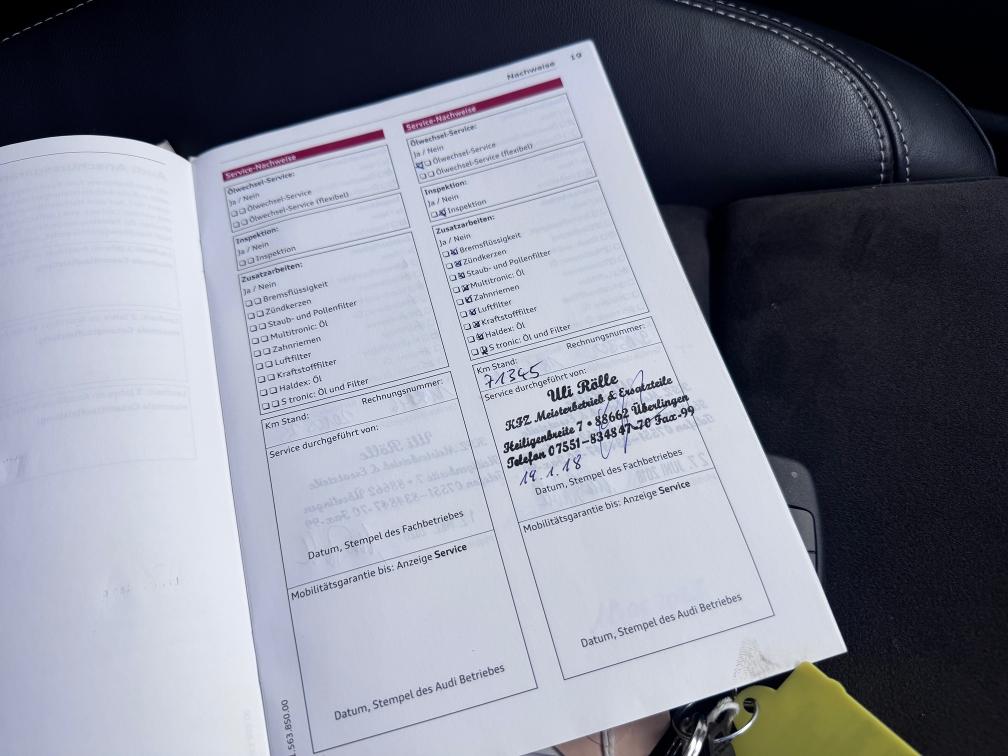 Nachweise 19
Service-Nachweise
Ölwechsel-Service:
Ja / Nein
Ölwechsel-Service
Ölwechsel-Service (flexibel)
Inspektion:
Ja / Nein
Inspektion
Zusatzarbeiten:
Ja / Nein
Bremsflüssigkeit
Zündkerzen
Staub- und Pollenfilter
Multitronic: Öl
Zahnriemen
Luftfilter
Kraftstofffilter
Haldex: Öl
S tronic: Öl und Filter
Km Stand: Rechnungsnummer:
Service durchgeführt von:
Datum, Stempel des Fachbetriebes
Mobilitätsgarantie bis: Anzeige Service
Datum, Stempel des Audi Betriebes
Service-Nachweise
Ölwechsel-Service:
Ja / Nein
Ölwechsel-Service
Ölwechsel-Service (flexibel)
Inspektion:
Ja / Nein
Inspektion
Zusatzarbeiten:
Ja / Nein
Bremsflüssigkeit
Zündkerzen
Staub- und Pollenfilter
Multitronic: Öl
Zahnriemen
Luftfilter
Kraftstofffilter
Haldex: Öl
S tronic: Öl und Filter
Km Stand: Rechnungsnummer:
71345
Service durchgeführt von:
Uli Rölle
KFZ Meisterbetrieb & Ersatzteile
Heiligenbreite 7 • 88662 Überlingen
Telefon 07551-834847-70 Fax-99
19.1.18
Datum, Stempel des Fachbetriebes
Mobilitätsgarantie bis: Anzeige Service
Datum, Stempel des Audi Betriebes
.563.850.00